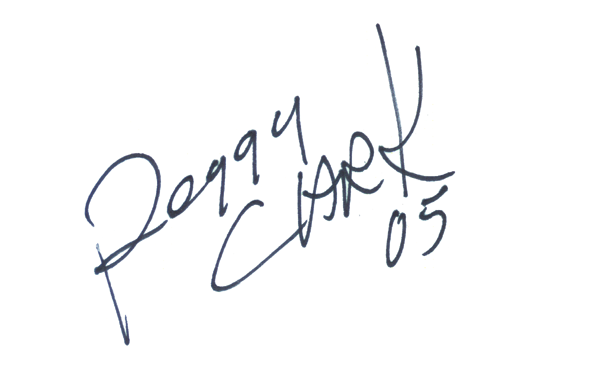 Peggy
CLARK
05